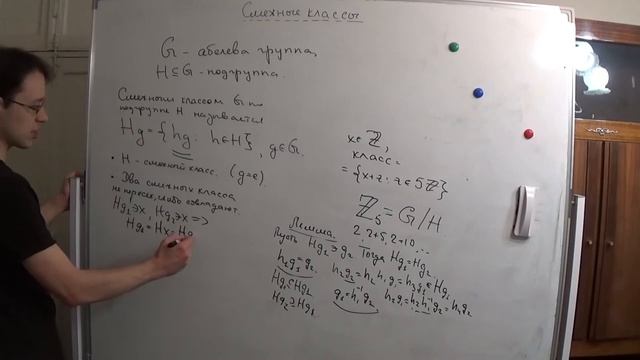 Смежные классы
G - абелева группа,
H ⊆ G - подгруппа.
Смежным классом G по
подгруппе H называется
Hg = {hg : h∈H}, g∈G.
• H - смежный класс. (g=e).
• Два смежных класса
не пересек., либо совпадают.
Hg₁∋x, Hg₂∋x =>
Hg₁ = Hx = Hg
x∈ℤ,
класс =
= {x+z : z∈5ℤ}
ℤ₅ = G/H
2, 2+5, 2+10, ...
Лемма.
Пусть Hg₁∋g₂. Тогда Hg₁=Hg₂.
h₁g₁=g₂
Hg₂⊆Hg₁
Hg₂⊇Hg₁
h₂g₂=h₂h₁g₁=h₃g₁∈Hg₁
g₁=h₁⁻¹g₂
h₂g₁=h₂h₁⁻¹g₂=h₄g₂